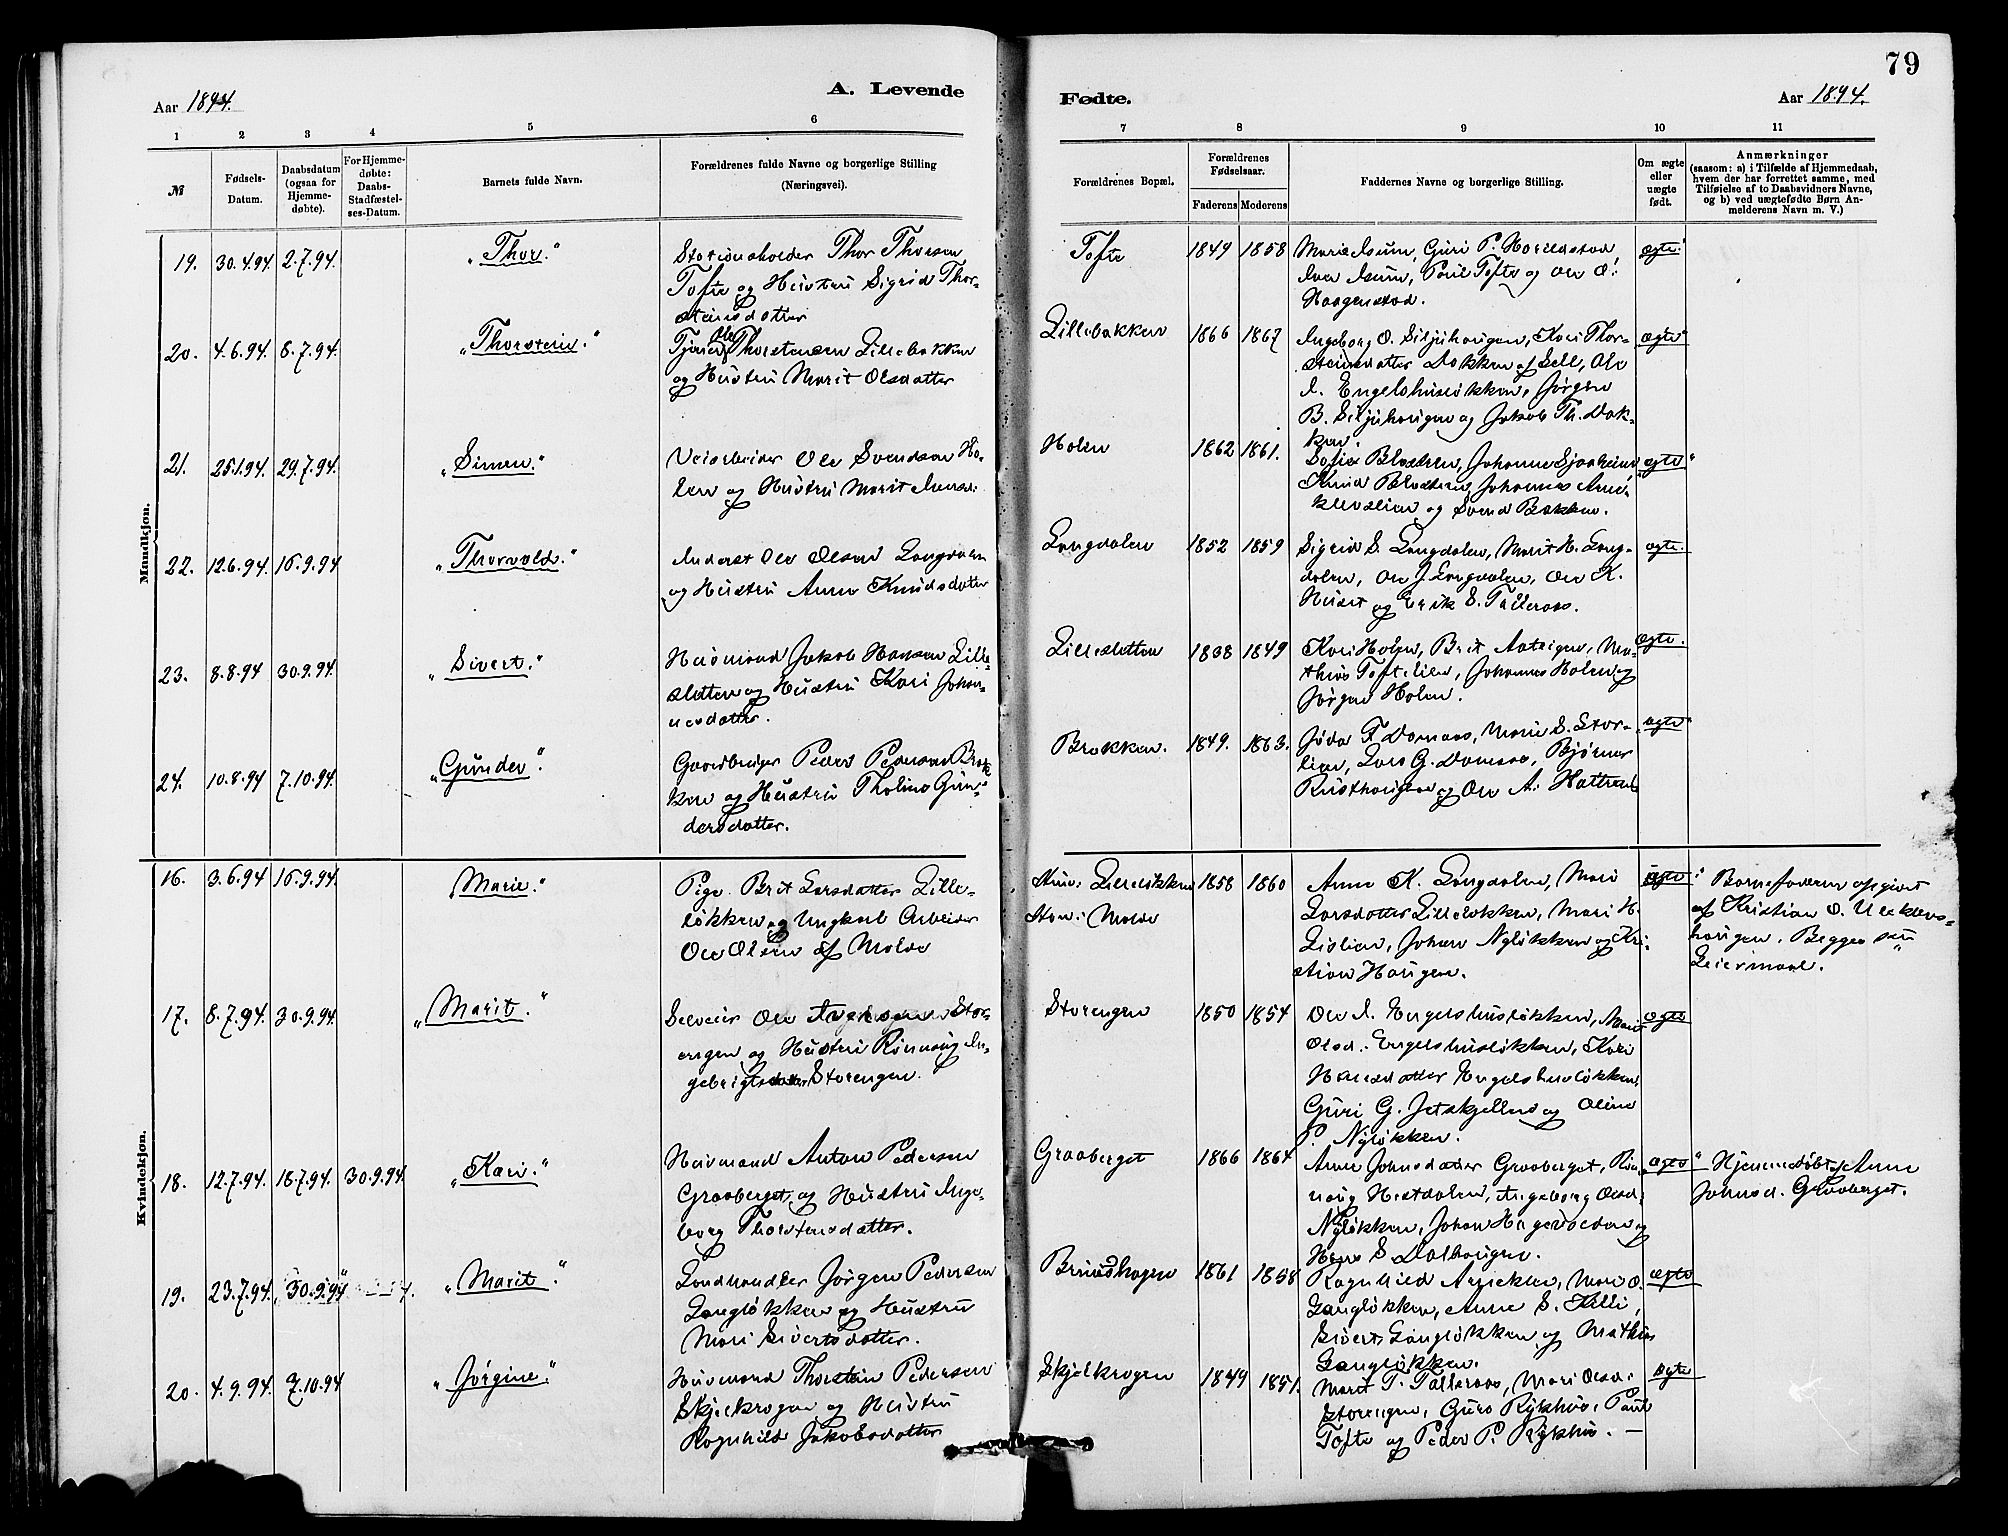 79
Aar 1894.
A. Levende
Fødte.
Aar 1894.
1 2 3 4 5 6 7 8 9 10 11
№
Fødsels-
Datum.
Daabsdatum
(ogsaa for
Hjemme-
døbte).
For Hjemme-
døbte:
Daabs-
Stadfæstel-
ses-Datum.
Barnets fulde Navn.
Forældrenes fulde Navne og borgerlige Stilling
(Næringsvei).
Forældrenes Bopæl.
Forældrenes
Fødselsaar.
Faderens Moderens
Faddernes Navne og borgerlige Stilling.
Om ægte
eller
uægte
født.
Anmærkninger
(saasom: a) i Tilfælde af Hjemmedaab,
hvem der har forrettet samme, med
Tilføielse af to Daabsvidners Navne,
og b) ved uægtefødte Børn An-
melderens Navn m. V.)
Mandkjøn.
19. 30.4.94. 2.7.94. "Thor."
Stationsholder Thor Thorsen
Tofte og Hustru Sigrid Thor-
steinsdatter
Tofte 1849 1858
Marie Isum, Guri P. Harildstad,
Iver Isum, Paul Tofte og Ole O.
Haagenstad.
ægte
20. 4.6.94. 8.7.94. "Thorstein."
Thorstensen Lillebakken
og Hustru Marit Olsdatter
Lillebakken 1866 1867
Ingeborg O. Siljuhaugen, Kari Thor-
steinsdatter Dokken af Sell, Ole
I. Engelshusløkken, Jørgen
B. Siljuhaugen og Jakob Th. Dok-
ken.
ægte
21. 25.1.94. 29.7.94. "Simen."
Veiarbeider Ole Svendsen Ho-
len og Hustru Marit Iversd.
Holen 1862 1861.
Sofie Bræen, Johanne
Knud Johannes
og Svend Bakken.
ægte
22. 12.6.94. 16.9.94 "Thorvald."
Inderst Ole Olsen Langdalen
og Hustru Anne Knudsdatter
Langdalen 1852 1859
Sigrid S. Langdalen, Marit H. Lang-
dalen, Ole J. Langdalen, Ole K.
Huset og Erik S. Talleraas.
ægte.
23. 8.8.94 30.9.94. "Sivert."
Husmand Jakob Hansen Lille-
sletten og Hustru Kari Johan-
nesdatter.
Lillesletten 1838 1849
Kari Holen, Brit Ma-
thias Toftelien, Johannes Holen og
Jørgen Holen.
ægte.
24. 10.8.94 7.10.94. "Gunder."
Gaardbruger Peder Pedersen Brøk-
ken og Hustru Tholine Gun-
dersdatter.
Brækken. 1849. 1863.
F. Domaas, Marie S. Stor-
lien, Lars G. Domaas, Bjørner
Rusthaugen og Ole A. Hattrem
ægte
Kvindekjøn.
16. 3.6.94 16.9.94. Marie."
Pige Brit Larsdatter Lille-
løkken og Ungkarl Arbeider
Ole Olsen af Molde
Hun: Lilleløkken 1858 1860
Han: Molde
Anne K. Langdalen, Mari
Larsdatter Lilleløkken, Mari H.
Lislien, Johan Nyløkken og Kri-
stian Haugen.
Barnefaderen opgivet
af Kristian O. Ulekleiv-
haugen. Begges
Leiermaal.
17. 8.7.94. 30.9.94. "Marit."
Selveier Ole Stor-
engen og Hustru Rønnaug In-
gebrigtsdatter Storengen.
Storengen 1850 1854
Ole I. Engelshusløkken, Marit
Olsd. Engelshusløkken, Kari
Hansdatter Engelshusløkken,
Guri G. Jetskjellen og Oline
P. Nyløkken.
ægte
18. 12.7.94. 18.7.94. 30.9.94. "Kari."
Husmand Anton Pedersen
Graaberget og Hustru Inge-
borg Thorstensdatter.
Graaberget 1866 1864
Anne Johnsdatter Graaberget, Røn-
naug Hestdalen, Ingeborg Olsd.
Nyløkken, Johan og
Hans S. Dalhaugen.
ægte
Hjemmedøbt af Anne
Johnsd. Graaberget.
19. 23.7.94. 30.9.94 "Marit."
Landhandler Jørgen Pedersen
Langløkken og Hustru
Mari Sivertsdatter.
Brændhagen 1861 1858
Ragnhild Mari O.
Langløkken, Anne S. Killi,
Sivert Langløkken og Mathias
Langløkken.
ægte
20. 4.9.94. 7.10.94 "Jørgine."
Husmand Thorstein Pedersen
Skjelkrogen og Hustru
Ragnhild Jakobsdatter
Skjelkrogen 1849 1851.
Marit T. Talleraas, Mari Olsd.
Storengen, Guro Rykhus, Paul
Tofte og Peder P. Rykhus. —
ægte